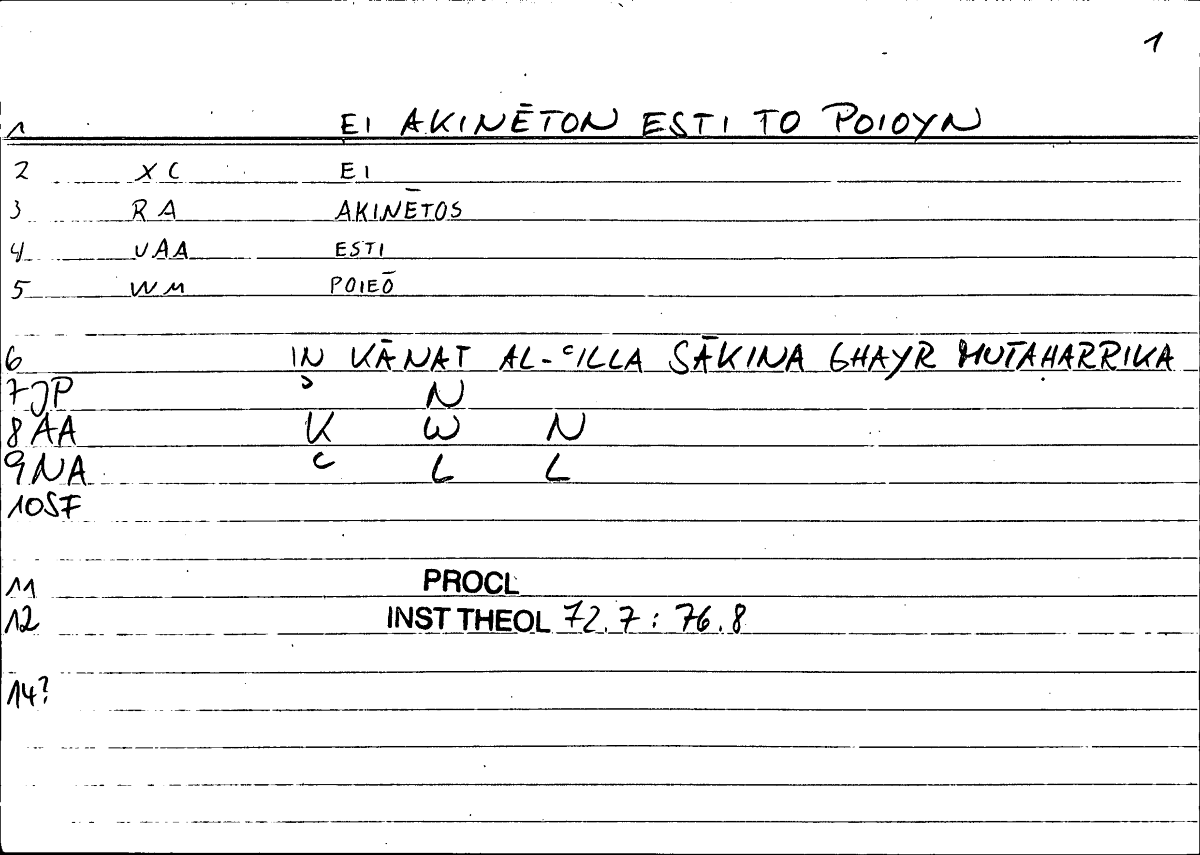 1
1 EI AKINĒTON ESTI TO POIOYN
2 XC EI
3 RA AKINĒTOS
4 UAA ESTI
5 WM POIEŌ
6 IN KĀNAT AL-ʿILLA SĀKINA GHAYR MUTAḤARRIKA
7 JP ʾ N
8 AA K W N
9 NA ʿ L L
10 SF
11 PROCL
12 INST THEOL 72.7 : 76.8
14?